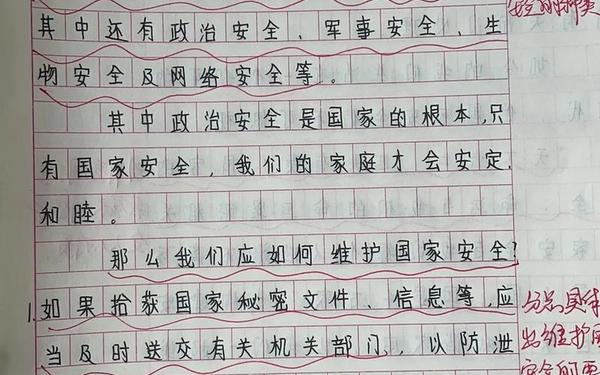 其中还有政治安全、军事安全、生
物安全及网络安全等。
其中政治安全是国家的根本,只
有国家安全,我们的家庭才会安定.
和睦。
那么我们应如何维护国家安全?
1.如果拾获国家秘密文件、信息等,应
当及时送交有关机关部门、以防泄
分点具体
出维护国
安全的要